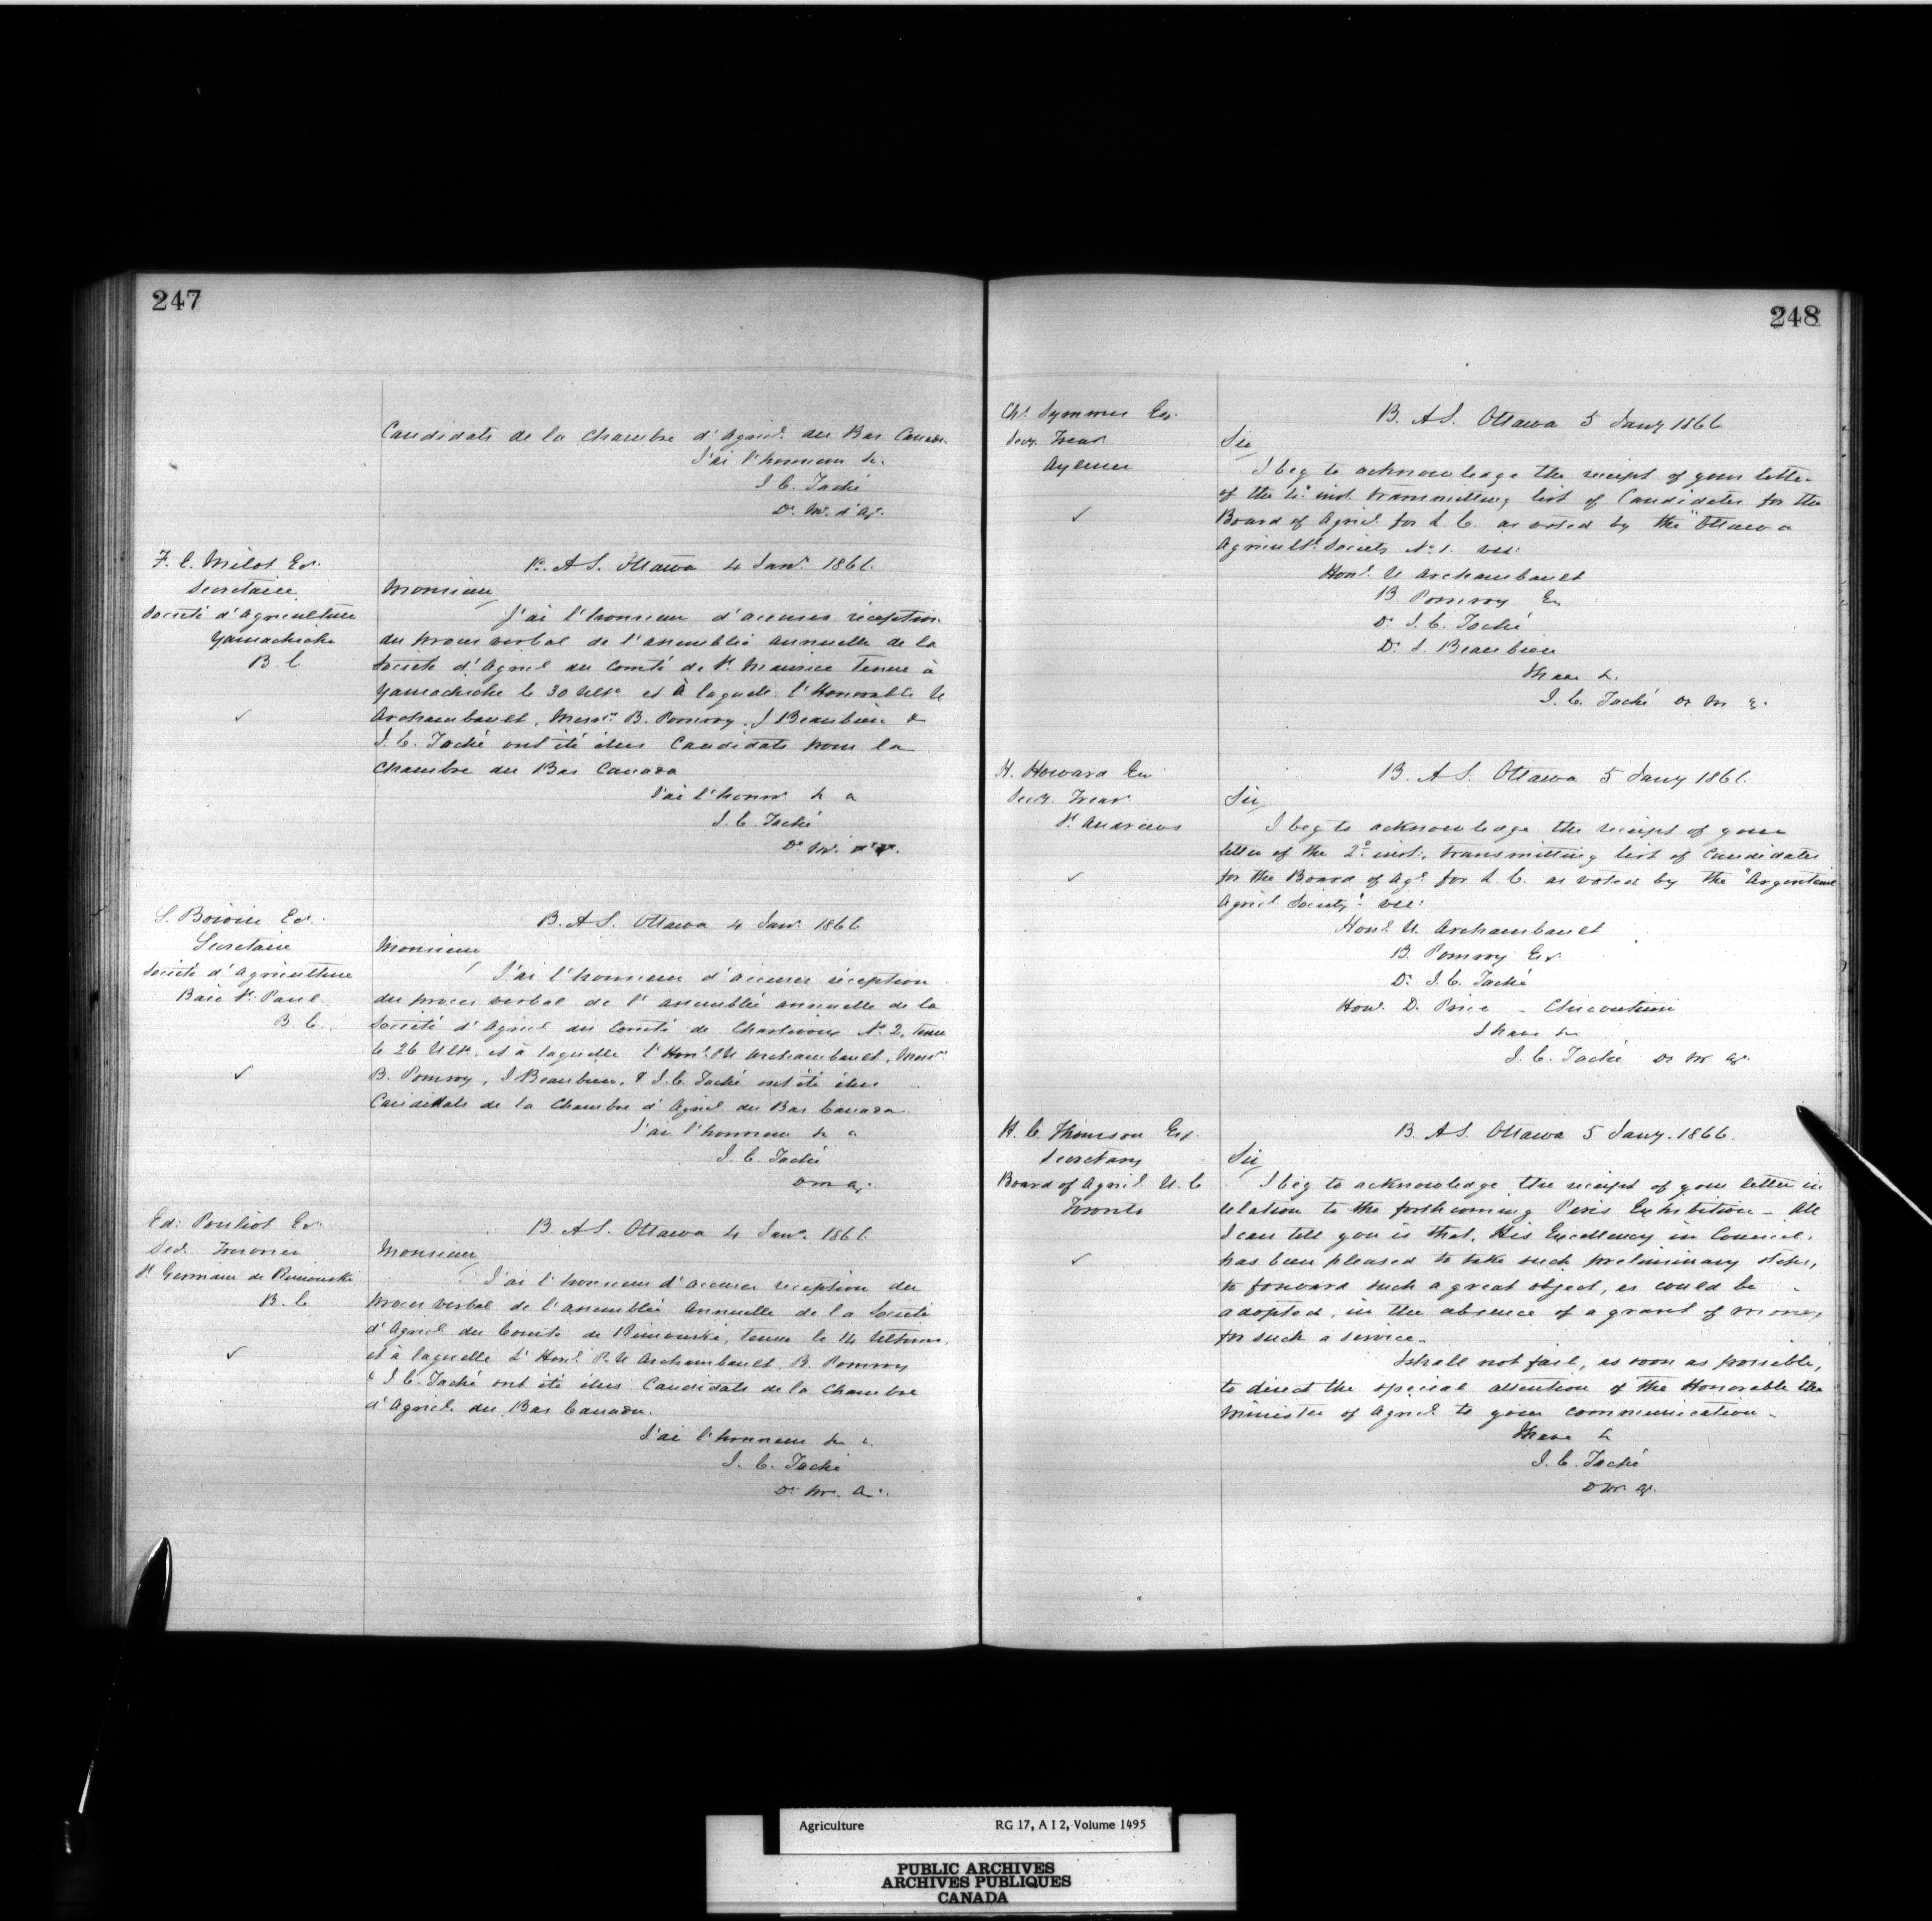 247
Candidats de la Chambre d'Agricl. du Bas Canada.
J'ai l'honneur &c.
J. C. Taché
Dr. M. d'Ag.
F. E. Milot Er.
Secretaire
Societé d'Agriculture
Yamachiche
B. C
✓
B. A S. Ottawa 4 Janr. 1866.
Monsieur
J'ai l'honneur d'accuser réception
du proces verbal de l'assemblée annuelle de la
Societé d'Agricl du Comté de St. Maurice tenue à
Yamachiche le 30 Ulto. et à laquelle l'Honorable U
Archambault, Messrs. B. Pomroy, J Beaubien &
J. C. Taché ont été élus Candidats pour la
Chambre du Bas Canada
J'ai l'honnr &c a
J. C. Taché
Dr. M.
S. Boivin Er.
Secretaire
Societé d'Agriculture
Baie St. Paul
B. C.
✓
B. A S. Ottawa 4 Janr. 1866
Monsieur
J'ai l'honneur d'accuser réception
du proces verbal de l'assemblée annuelle de la
Société d'Agricl du Comté de Charlevoix No. 2, tenue
le 26 Ulto. et à laquelle l'Honl. P U Archambault, Messrs
B. Pomroy, J Beaubien, & J. C. Taché ont été élus
Candidats de la Chambre d'Agricl du Bas Canada.
J'ai l'honneur &c a
J. C. Taché
D M A.
Ed: Pouliot Er.
Sec. Tresorier
St Germain de Rimouski
B. C
✓
B. A S. Ottawa 4 Janr. 1866
Monsieur
J'ai l'honneur d'accuser reception du
proces verbal de l'assemblée Annuelle de la Societé
d'Agricl du Comté de Rimouski, tenue le 14 Ultimo,
et à laquelle L'Honl. P. U Archambault, B. Pomroy
& J. C. Taché ont été élus Candidats de la Chambre
d'Agricl. du Bas Canada.
J'ai l'honneur &c
J. C. Taché
Dr. M. A.
248
Chs. Symmes Er.
Secy. Treas.
Aylmer
✓
B. A S. Ottawa 5 Jany 1866
Sir
I beg to acknowledge the receipt of your letter
of the inst. transmitting list of Candidates for the
Board of Agricl. for L. C. as voted by the "Ottawa
Agricultl. Society No. 1. viz:
Honl. U Archambault
B Pomroy Er
Dr. J. C. Taché
Dr. J. Beaubien
I have &c.
J. C. Taché D M
H. Howard Er
Secy. Treas.
St. Andrews
✓
B. A S. Ottawa 5 Jany 1866.
Sir
I beg to acknowledge the receipt of your
letter of the 2o. inst., transmitting list of Candidates
for the Board of Agl. for L. C. as voted by the "Argenteuil
Agricl Society" viz:
Honl. U. Archambault
B. Pomroy Er.
Dr. J. C. Taché
Honl. D. Price - Chicoutimi
I have &c
J. C. Taché D M Ag.
H. C. Thomson Er.
Secretary
Board of Agricl. U. C
Toronto
✓
B. A S. Ottawa 5 Jany. 1866.
Sir
I beg to acknowledge the receipt of your letter in
relation to the forthcoming Paris Exhibition - All
I can tell you is that, His Excellency in Council,
has been pleased to take such preliminary steps,
to forward such a great object, as could be
adopted, in the absence of a grant of money
for such a service.
I shall not fail, as soon as possible,
to direct the special attention of the Honorable the
Minister of Agricl. to your communication -
I have &c
J. C. Taché
D M Ag.
Agriculture RG 17, A I 2, Volume 1495
PUBLIC ARCHIVES
ARCHIVES PUBLIQUES
CANADA